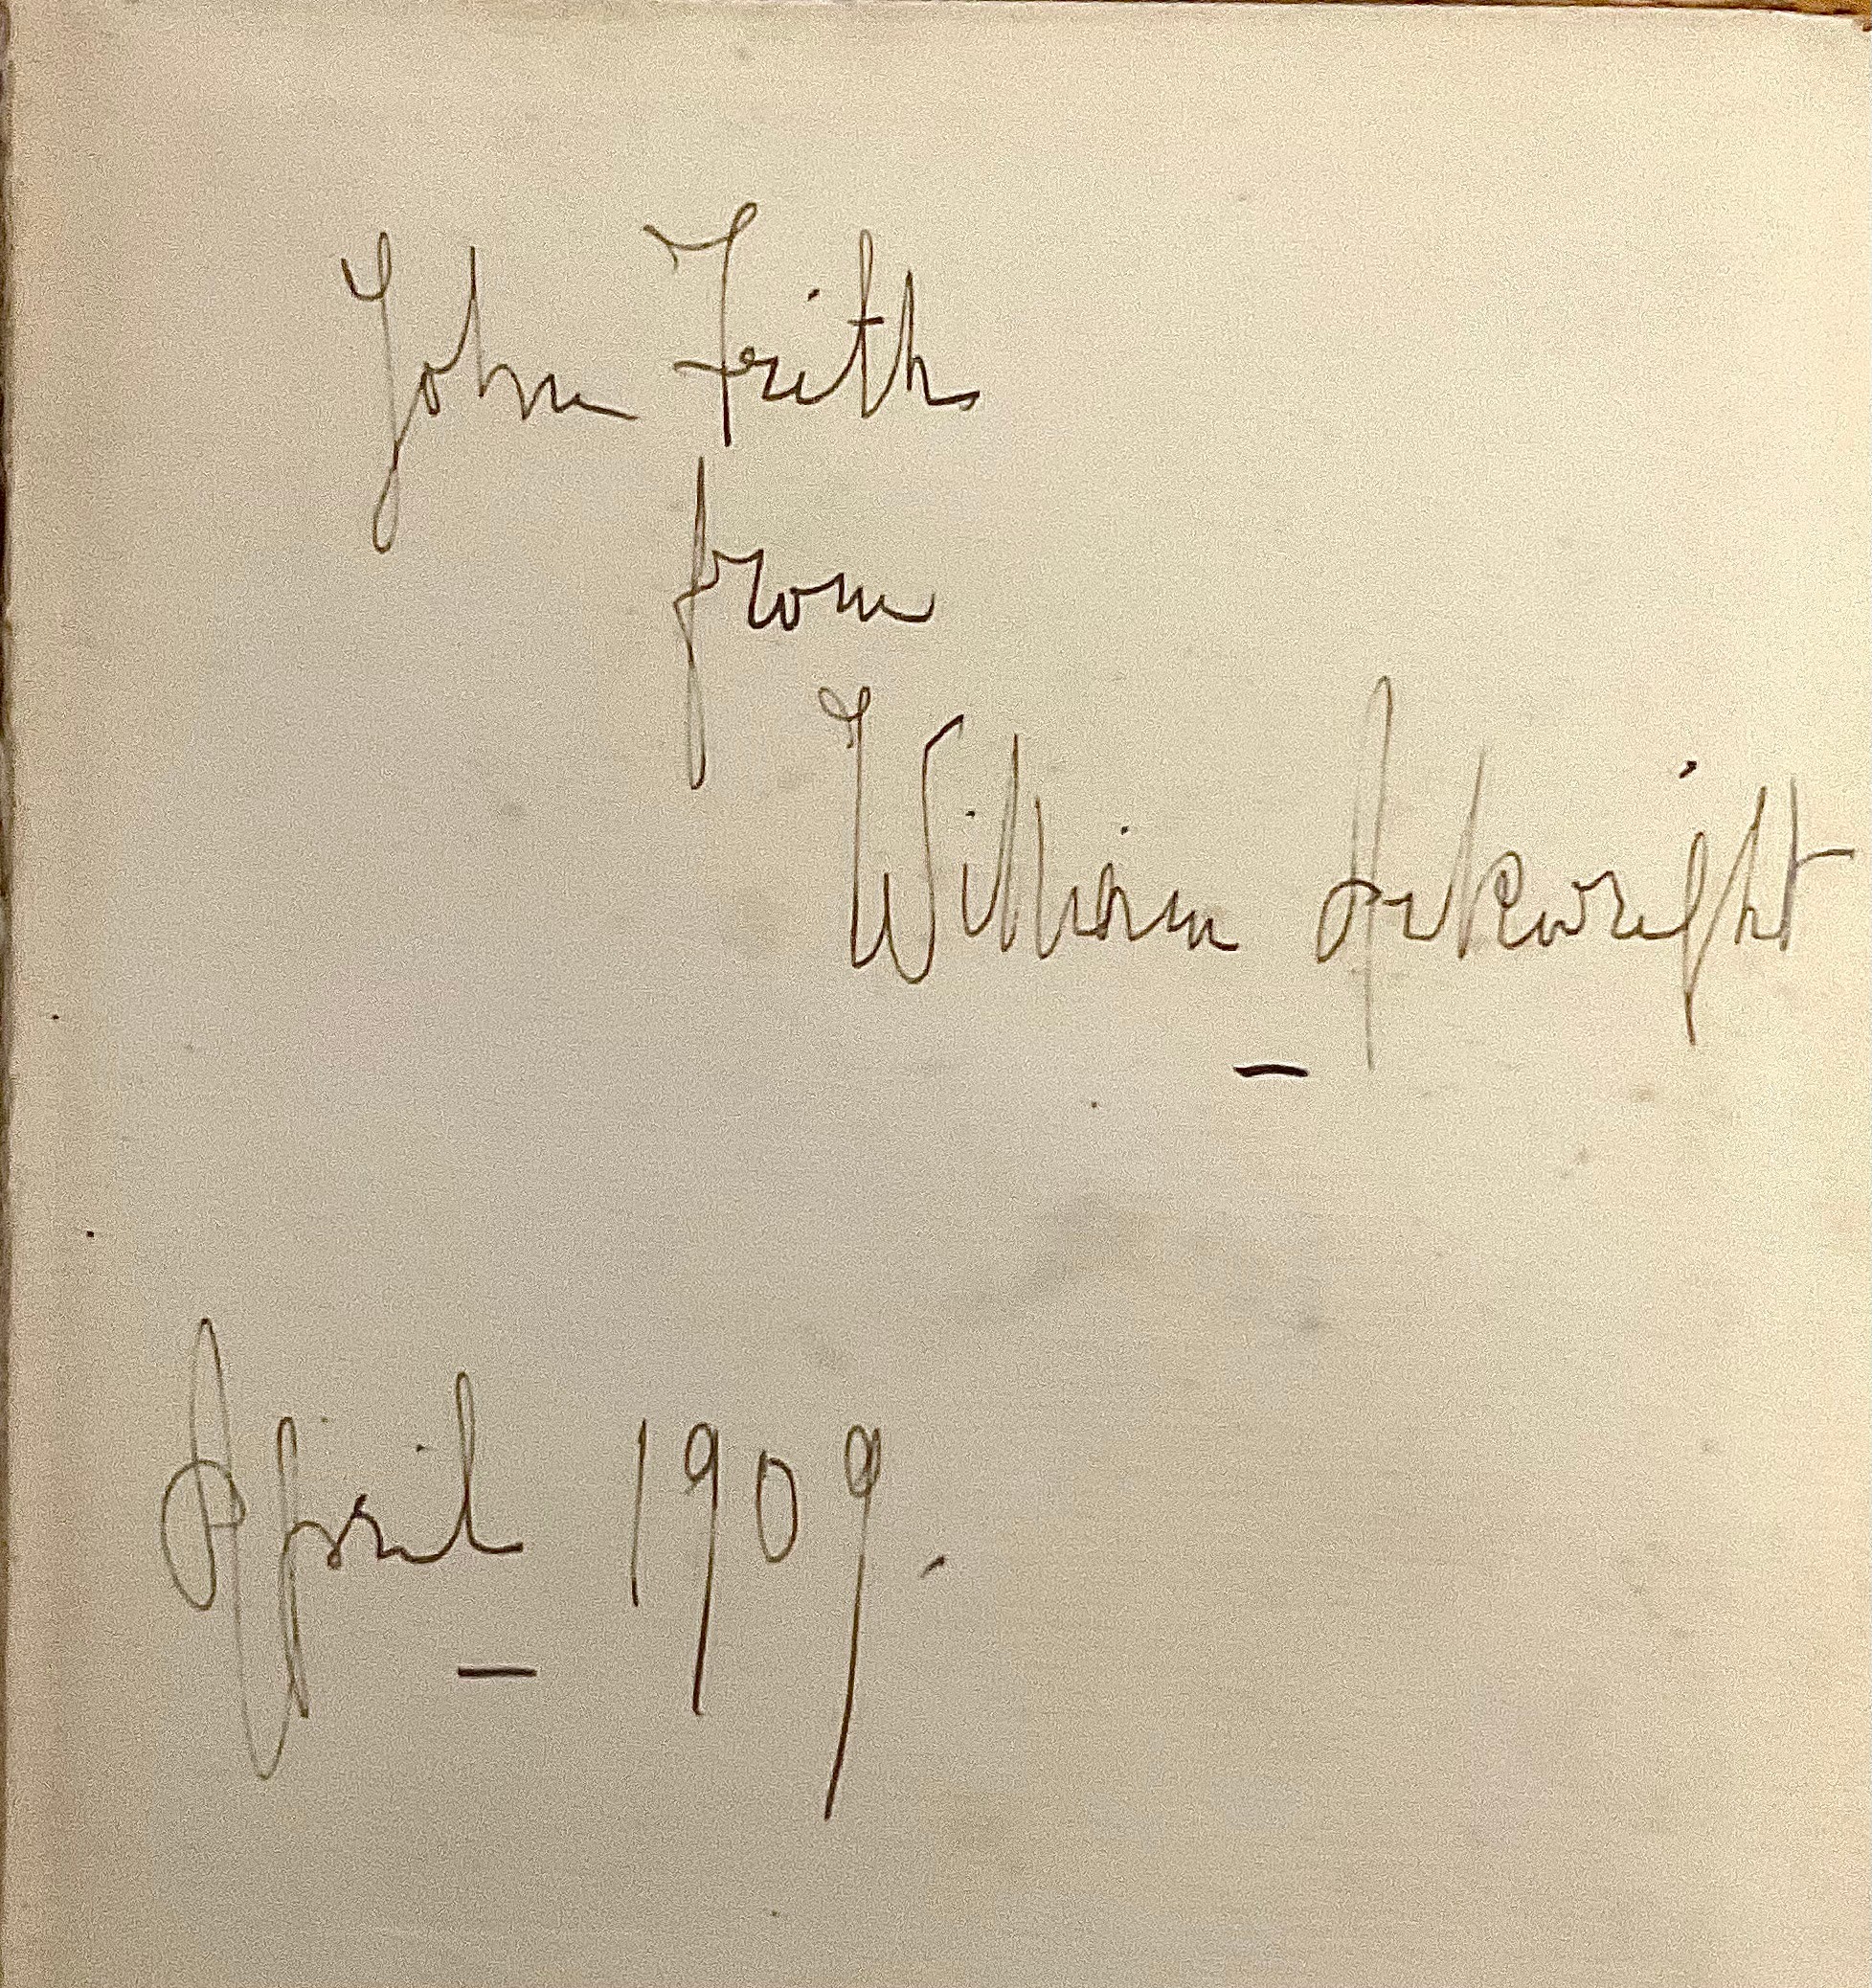 John Frith
from
William Arkwright
April 1909.